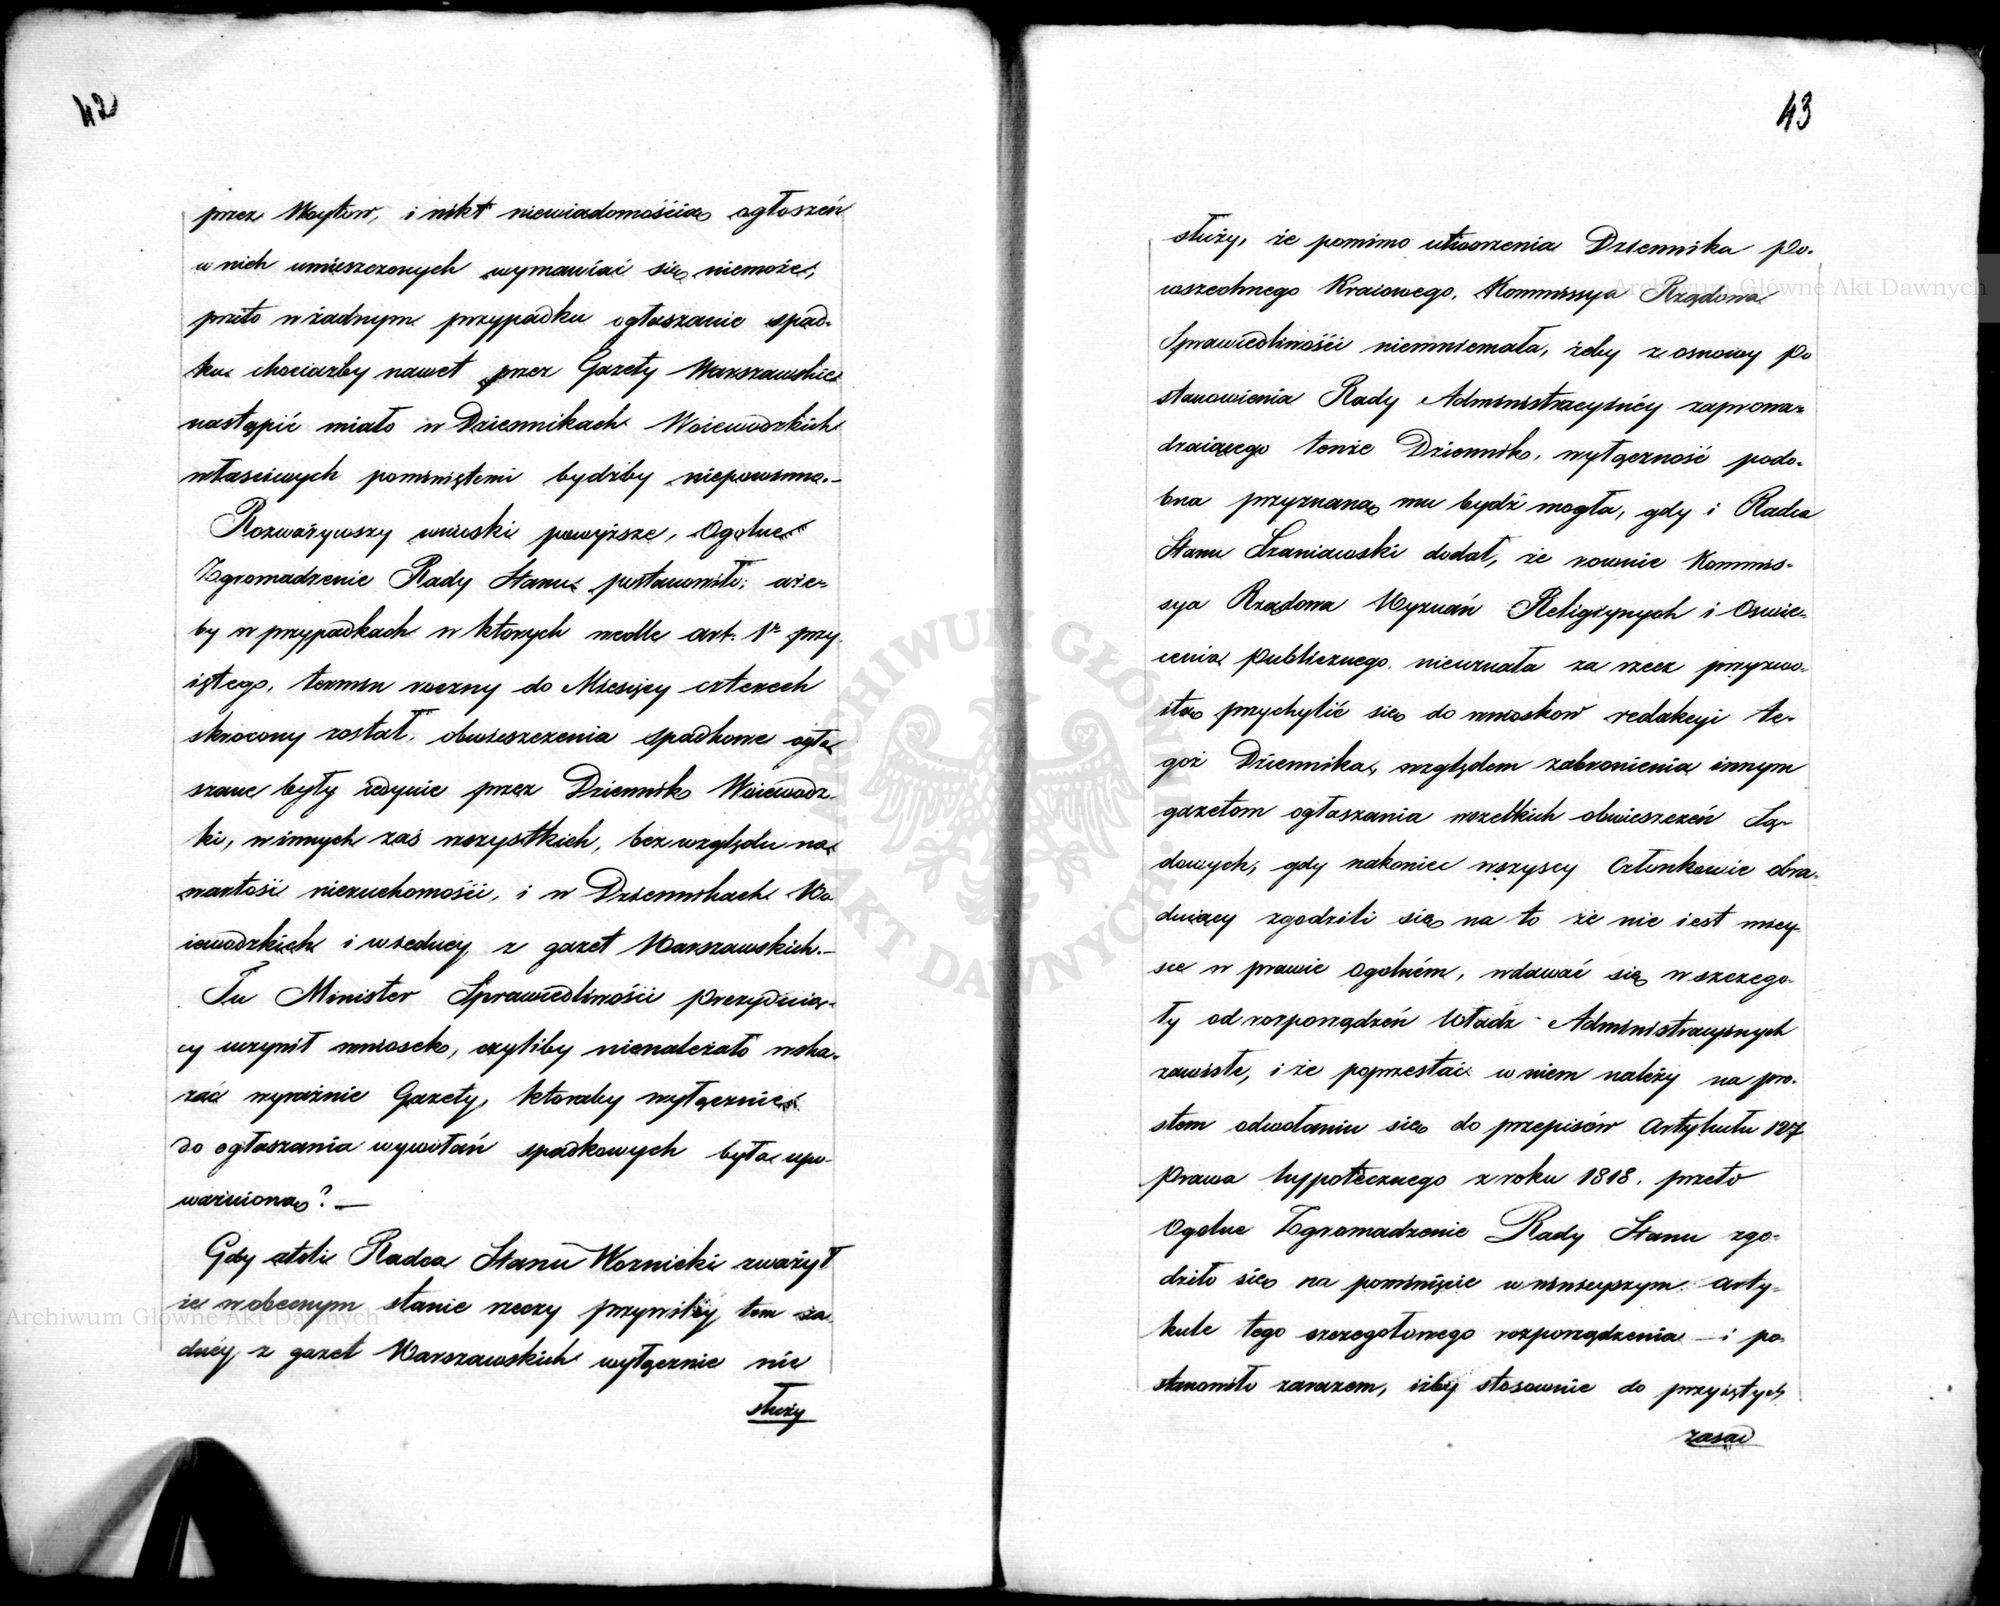 42
przez Woytow, i nikt niewiadomością ogłoszeń
w nich umieszczonych wymawiać się niemoże,
przeto w żadnym przypadku ogłaszanie spad-
ku chociażby nawet przez Gazety Warszawskie
nastąpić miało w Dziennikach Woiewodzkich
właściwych pominiętemi bydźby niepowinno.—
Rozważywszy wnioski powyższe, Ogolne
Zgromadzenie Rady Stanu postanowiło: aże-
by w przypadkach w ktorych wedle art. 1o przy-
iętego, termin roczny do Miesięcy czterech
skrocony został, obwieszczenia spadkowe ogła-
szane były iedynie przez Dziennik Woiewodz-
ki, w innych zaś wszystkich, bez względu na
wartość nieruchomości, i w Dziennikach Wo-
iewodzkich i w iedney z gazet Warszawskich.—
Tu Minister Sprawiedliwości Prezyduią-
cy uczynił wniosek, czyliby nienależało wska-
zać wyraźnie Gazety, ktoraby wyłącznie
do ogłaszania wywołań spadkowych była upo-
ważniona? —
Gdy atoli Radca Stanu Woznicki zważył
że w obecnym stanie rzeczy przywiley ten ża-
dney z gazet Warszawskich wyłącznie nie
służy
43
służy, że pomimo utworzenia Dziennika Po-
wszechnego Kraiowego, Kommissya Rządowa
Sprawiedliwości niemniemała, żeby z osnowy Po
stanowienia Rady Administracyinéy zaprowa-
dzaiącego tenże Dziennik, wyłączność podo-
bna przyznaną mu bydź mogła, gdy i Radca
Stanu Szaniawski dodał, że rownie Kommis-
sya Rządowa Wyznań Religiynych i Oświe-
cenia Publicznego nieuznała za rzecz przyzwo-
itą przychylić się do wniosków redakcyi te-
goż Dziennika, względem zabronienia innym
gazetom ogłaszania wszelkich obwieszczeń Są-
dowych, gdy nakoniec wszyscy Członkowie obra-
duiący zgodzili się na to że nie iest miey-
sce w prawie ogolném, wdawać się w szczegó-
ły od rozporządzeń Władz Administracyinych
zawisłe, i że poprzestać w niem należy na pro-
stem odwołaniu się do przepisów Artykułu 127
Prawa hyppotecznego z roku 1818. przeto
Ogolne Zgromadzenie Rady Stanu zgo-
dziło się na pominięcie w ninieyszym Arty-
kule tego szczegółowego rozporządzenia — i po-
stanowiło zarazem, iżby stosownie do przyiętych
zasad
Archiwum Główne Akt Dawnych
Archiwum Główne Akt Dawnych
ARCHIWUM GŁÓWNE AKT DAWNYCH